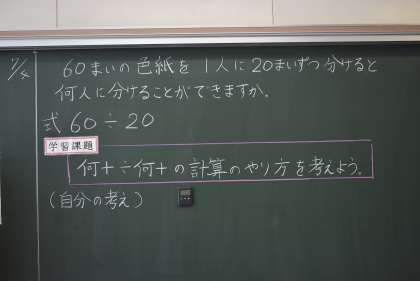 60まいの色紙を1人に20まいずつ分けると
何人に分けることができますか。
式 60÷20
学習課題
何十÷何十の計算のやり方を考えよう。
(自分の考え)